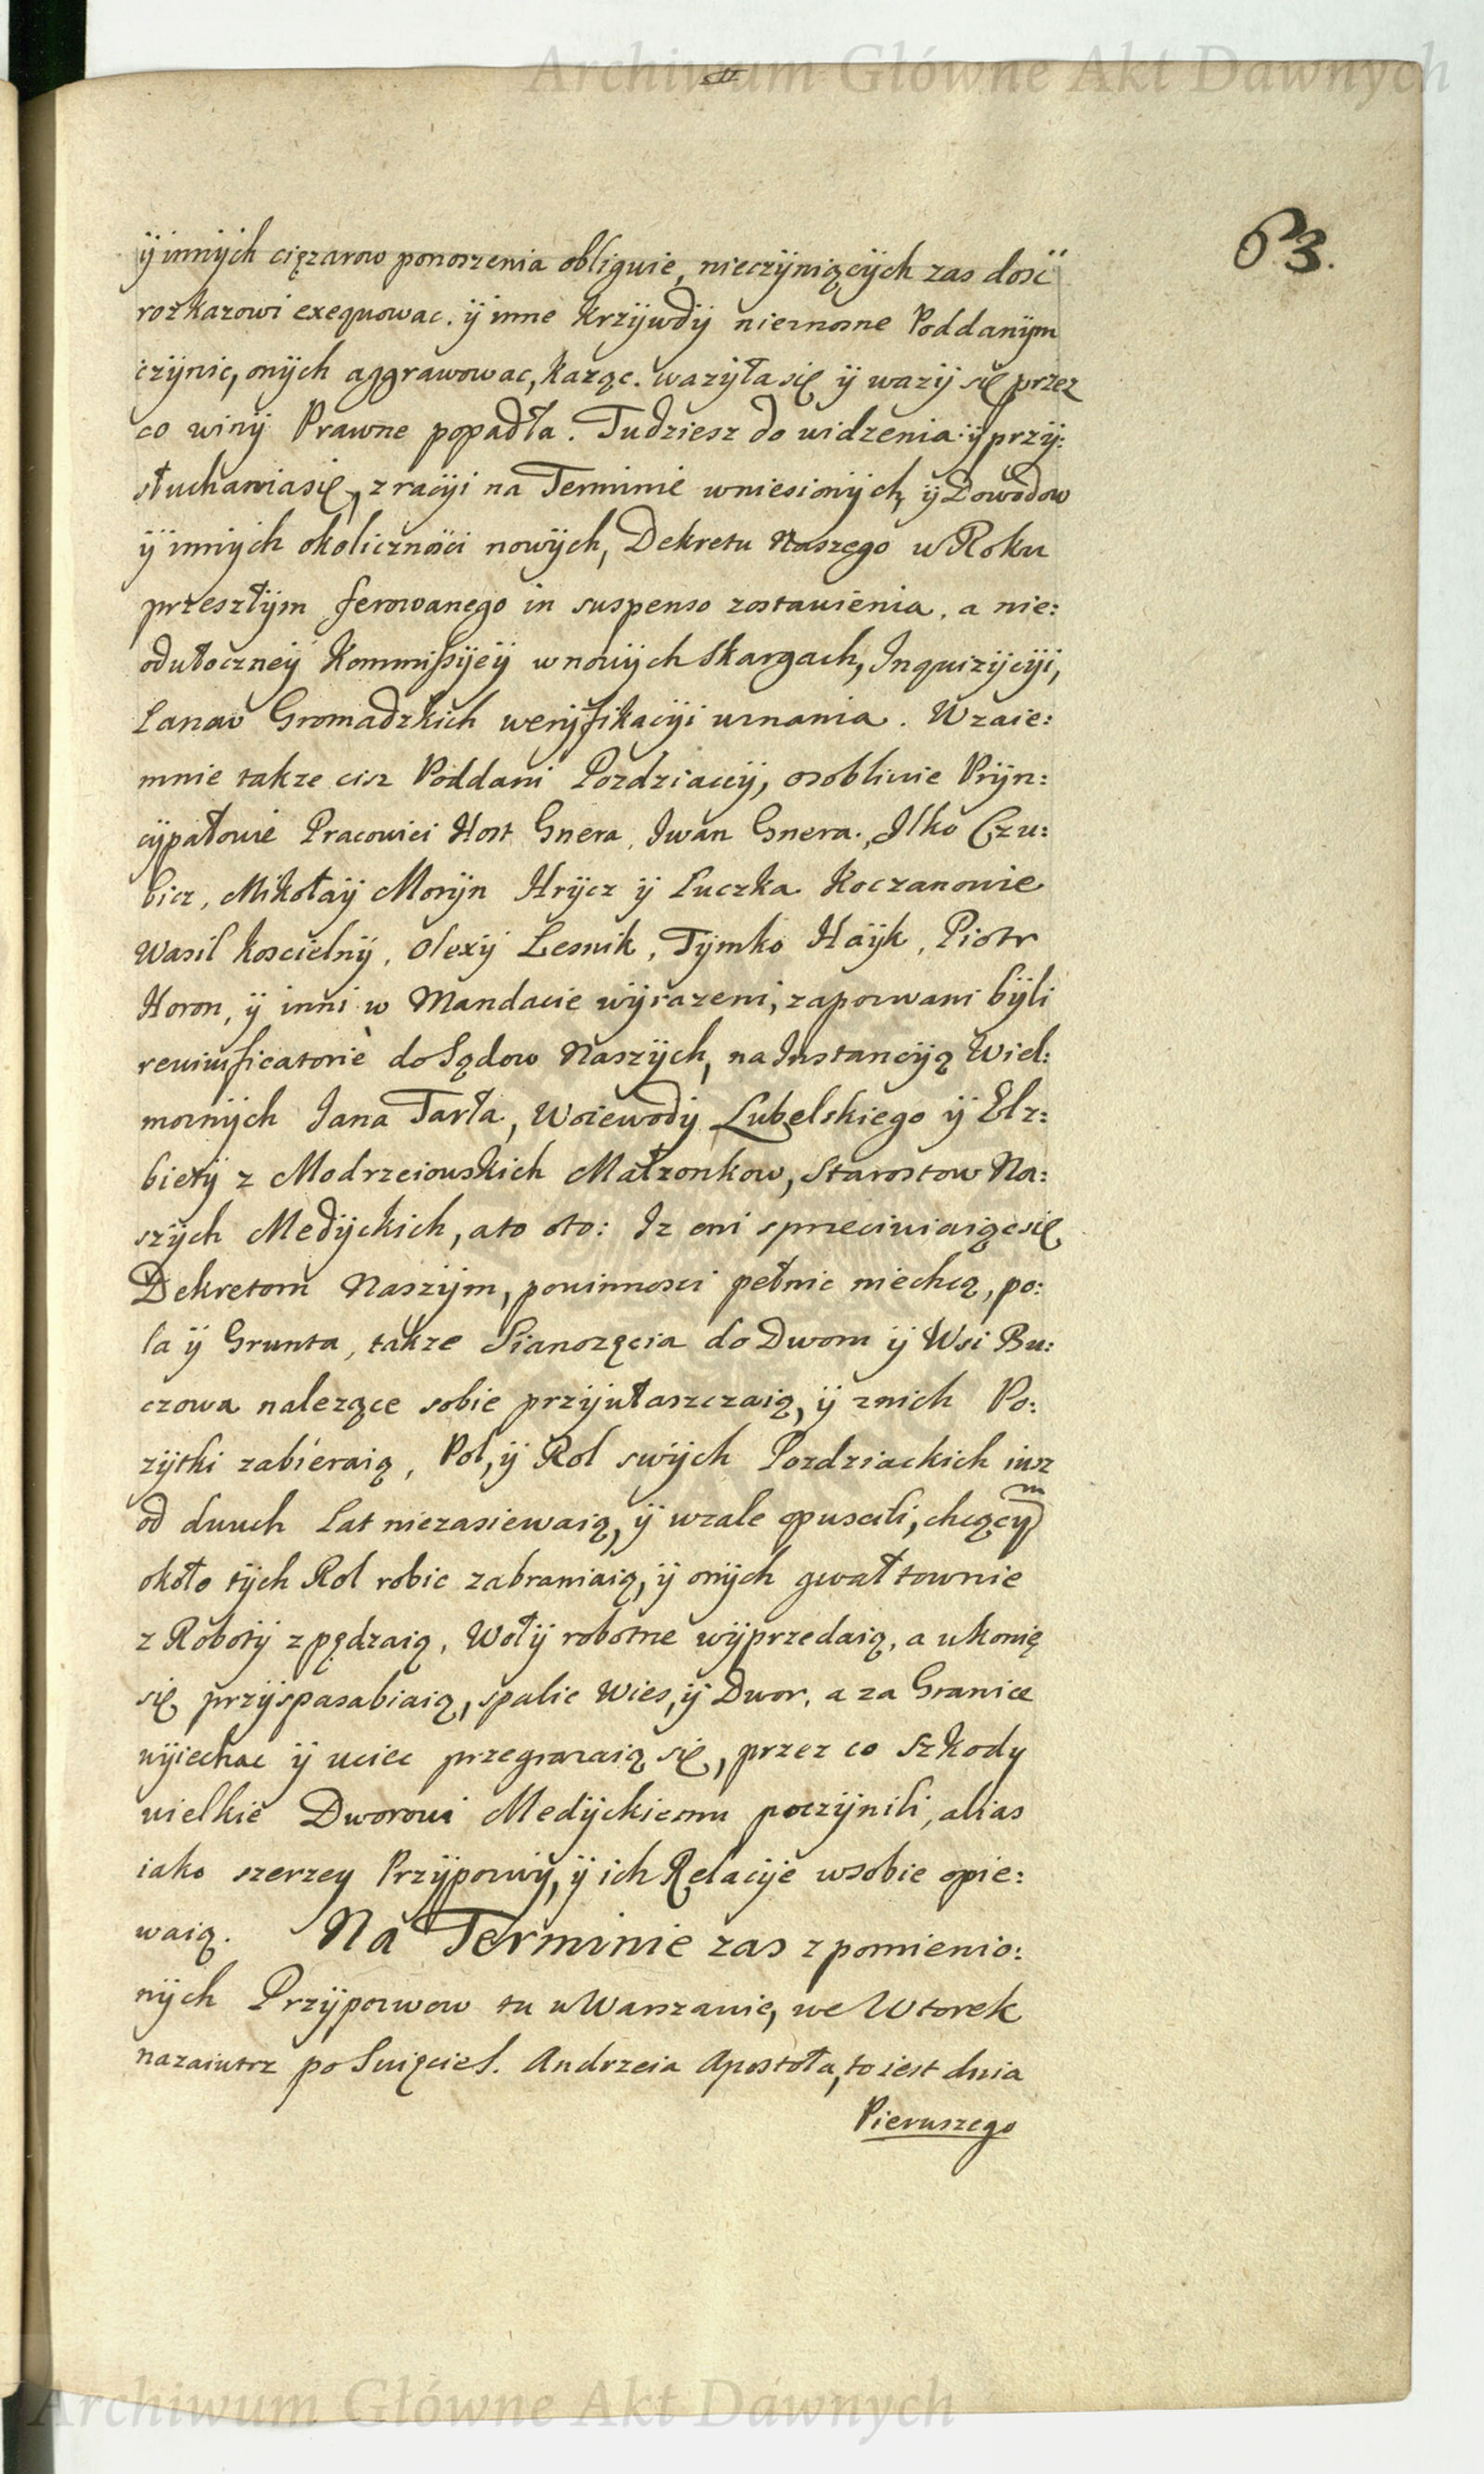 Archiwum Główne Akt Dawnych
63.
ÿ innÿch cięzarow ponoszenia obliguie, nieczÿniącÿch zas dosć
rozkazowi exequowac. ÿ inne krzÿwdÿ nieznosne Poddanÿm
czÿnic, onÿch aggrawowac, każąc. wazÿła się ÿ wazÿ się przez
co winÿ Prawne popadła. Tudziesz do widzenia ÿ przÿ:
słuchania się, z racÿi na Terminie wniesionÿch, ÿ Dowodow
ÿ innÿch okolicznosci nowÿch, Dekretu Naszego w Roku
przeszłÿm ferowanego in suspenso zostawienia, a nie:
odwłoczneÿ Kommissÿeÿ w nowÿch Skargach, Inquizÿcÿi,
Łanow Gromadzkich werÿfikacÿi uznania. Wzaie:
mnie takze cisz Poddani Pozdziaccÿ, osobliwie Prÿn:
cÿpałowie Pracowici Host Gnera, Iwan Gnera, Ilko Czu:
bicz, Mikołaÿ Morÿn Hrÿcz ÿ Łuczka Koczanowie
Wasil koscielnÿ, Olexÿ Lesnik, Tÿmko Haÿk, Piotr
Horon, ÿ inni w Mandacie wÿrazeni, zapozwani bÿli
reviuificatoriè do Sądow Naszÿch, na Instancÿą Wiel:
moznÿch Jana Tarła, Woiewodÿ Lubelskiego ÿ Elz:
bietÿ z Modrzeiowskich Małzonkow, Starostow Na:
szÿch Medÿckich, a to oto: Iz oni sprzeciwiaiąc się
Dekretom Naszÿm, powinnosci pełnic niechcą, po:
la ÿ Grunta, takze Sianozęcia do Dworu ÿ Wsi Bu:
czowa nalezące sobie przÿwłaszczaią, ÿ z nich Po:
zÿtki zabieraią, Pol, ÿ Rol swÿch Pozdziackich iusz
od dwuch Lat niezasiewaią, ÿ wzale opuscili, chcącÿm
około tÿch Rol robic zabraniaią, ÿ onÿch gwałtownie
z Robotÿ zpędzaią, Wołÿ robotne wÿprzedaią, a w konię
się przÿspasabiaią, spalic Wies, ÿ Dwor, a za Granice
wÿiechac ÿ uciec przegrazaią się, przez co Szkody
wielkie Dworowi Medÿckiemu poczÿnili, alias
iako szerzey Przÿpozwÿ, ÿ ich Relacÿe w sobie opie:
waią. Na Terminie zas zpomienio:
nÿch Przÿpozwow tu w Warszawie, we Wtorek
nazaiutrz po Swięcie S. Andrzeia Apostoła, to iest dnia
Pierwszego
Archiwum Główne Akt Dawnych